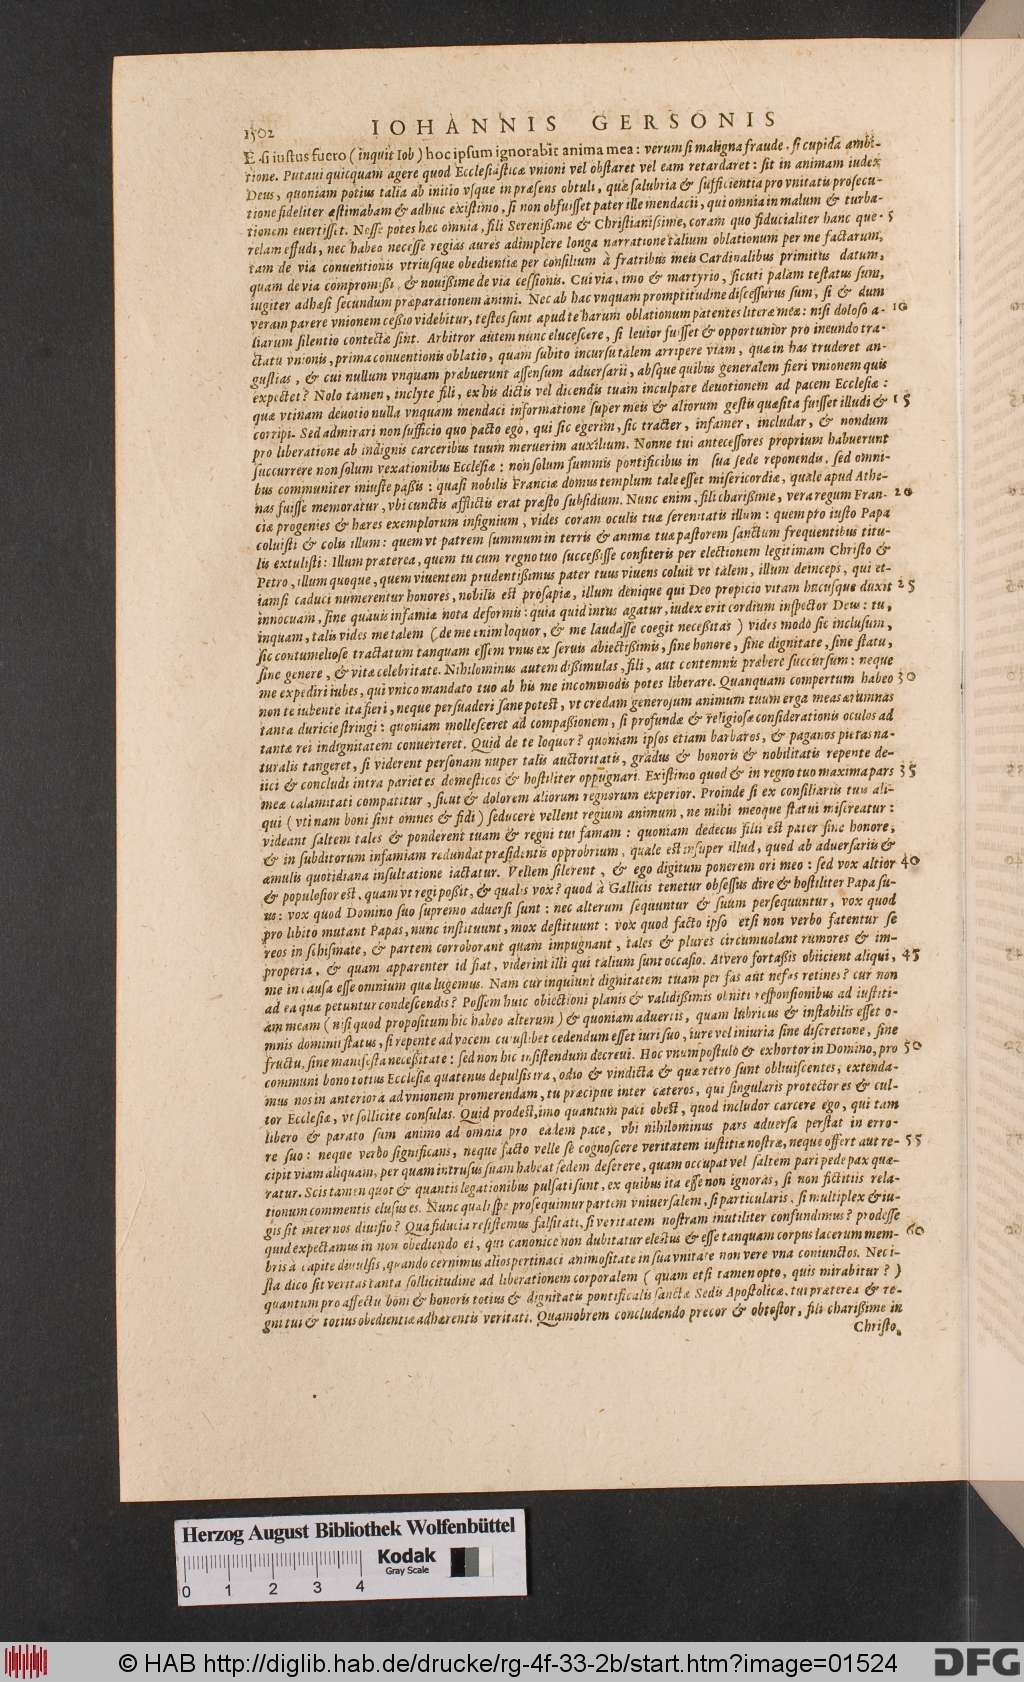 1502 IOHANNIS GERSONIS
Et si iustus fuero (inquit Iob) hoc ipsum ignorabit anima mea: verum si maligna fraude, si cupida ambi-
tione. Putaui quicquam agere quod Ecclesiasticæ vnioni vel obstaret vel eam retardaret: sit in animam iudex
Deus, quoniam potius talia ab initio vsque in præsens obtuli, quæ salubria & sufficientia pro vnitatis prosecu-
tione fideliter æstimabam & adhuc existimo, si non obfuisset pater ille mendacii, qui omnia in malum & turba-
tionem euertisset. Nosse potes hæc omnia, fili Serenissime & Christianissime, coram quo fiducialiter hanc que- 5
relam effudi, nec habeo necesse regias aures adimplere longa narratione talium oblationum per me factarum,
tam de via conuentionis vtriusque obedientiæ per consilium à fratribus meis Cardinalibus primitus datum,
quam de via compromissi, & nouissime de via cessionis. Cui via, imo & martyrio, sicuti palam testatus sum,
iugiter adhæsi secundum præparationem animi. Nec ab hac vnquam promptitudine discessurus sum, si & dum
veram parere vnionem cessio videbitur, testes sunt apud te harum oblationum patentes literæ meæ: nisi doloso a- 10
liarum silentio contectæ sint. Arbitror autem nunc elucescere, si leuior fuisset & opportunior pro ineundo tra-
ctatu vnionis, prima conuentionis oblatio, quam subito incursu talem arripere viam, quæ in has truderet an-
gustias, & cui nullum vnquam præbuerunt assensum aduersarii, absque quibus generalem fieri vnionem quis
expectet? Nolo tamen, inclyte fili, ex his dictis vel dicendis tuam inculpare deuotionem ad pacem Ecclesiæ:
quæ vtinam deuotio nulla vnquam mendaci informatione super meis & aliorum gestis quæsita fuisset illudi & 15
corripi. Sed admirari non sufficio quo pacto ego, qui sic egerim, sic tracter, infamer, includar, & nondum
pro liberatione ab indignis carceribus tuum meruerim auxilium. Nonne tui antecessores proprium habuerunt
succurrere non solum vexationibus Ecclesiæ: non solum summis pontificibus in sua sede reponendis, sed omni-
bus communiter iniuste passis: quasi nobilis Franciæ domus templum tale esset misericordiæ, quale apud Athe-
nas fuisse memoratur, vbi cunctis afflictis erat præsto subsidium. Nunc enim, fili charissime, vera regum Fran- 20
ciæ progenies & hæres exemplorum insignium, vides coram oculis tuæ serenitatis illum: quem pro iusto Papa
coluisti & colis illum: quem vt patrem summum in terris & animæ tuæ pastorem sanctum frequentibus titu-
lis extulisti: Illum præterea, quem tu cum regno tuo successisse confiteris per electionem legitimam Christo &
Petro, illum quoque, quem viuentem prudentissimus pater tuus viuens coluit vt talem, illum deinceps, qui et-
iamsi caduci numerentur honores, nobilis est prosapiæ, illum denique qui Deo propicio vitam hucusque duxit 25
innocuam, sine quauis infamiæ nota deformis: quia quid intus agatur, iudex erit cordium inspector Deus: tu,
inquam, talis vides me talem (de me enim loquor, & me laudasse coegit necessitas) vides modò sic inclusum,
sic contumeliose tractatum tanquam essem vnus ex seruis abiectissimis, sine honore, sine dignitate, sine statu,
sine genere, & vitæ celebritate. Nihilominus autem dissimulas, fili, aut contemnis præbere succursum: neque
me expediri iubes, qui vnico mandato tuo ab his me incommodis potes liberare. Quanquam compertum habeo 30
non te iubente ita fieri, neque persuaderi sane potest, vt credam generosum animum tuum erga meas ærumnas
tanta duricie stringi: quoniam mollesceret ad compassionem, si profundæ & religiosæ considerationis oculos ad
tantæ rei indignitatem conuerteret. Quid de te loquor? quoniam ipsos etiam barbaros, & paganos pietas na-
turalis tangeret, si viderent personam nuper talis auctoritatis, gradus & honoris & nobilitatis repente de-
iici & concludi intra parietes domesticos & hostiliter oppugnari. Existimo quod & in regno tuo maxima pars 35
meæ calamitati compatitur, sicut & dolorem aliorum regnorum experior. Proinde si ex consiliariis tuis ali-
qui (vtinam boni sint omnes & fidi) seducere vellent regium animum, ne mihi meoque statui misereatur:
videant saltem tales & ponderent tuam & regni tui famam: quoniam dedecus filii est pater sine honore,
& in subditorum infamiam redundat præsidentis opprobrium, quale est insuper illud, quod ab aduersariis &
æmulis quotidiana insultatione iactatur. Vellem silerent, & ego digitum ponerem ori meo: sed vox altior 40
& populosior est, quam vt regi possit, & qualis vox? quod à Gallicis tenetur obsessus dire & hostiliter Papa su-
us: vox quod Domino suo supremo aduersi sunt: nec alterum sequuntur & suum persequuntur, vox quod
pro libito mutant Papas, nunc instituunt, mox destituunt: vox quod facto ipso etsi non verbo fatentur se
reos in schismate, & partem corroborant quam impugnant, tales & plures circumuolant rumores & im-
properia, & quam apparenter id fiat, viderint illi qui talium sunt occasio. At vero fortassis obiicient aliqui, 45
me in causa esse omnium quæ lugemus. Nam cur inquiunt dignitatem tuam per fas aut nefas retines? cur non
ad ea quæ petuntur condescendis? Possem huic obiectioni planis & validissimis obniti responsionibus ad iustiti-
am meam (nisi quod propositum hic habeo alterum) & quoniam aduertis, quam lubricus & instabilis esset o-
mnis dominii status, si repente ad vocem cuiuslibet cedendum esset iuri suo, iure vel iniuria sine discretione, sine
fructu, sine manifesta necessitate: sed non hic insistendum decreui. Hoc vnum postulo & exhortor in Domino, pro 50
communi bono totius Ecclesiæ quatenus depulsis ira, odio & vindicta & quæ retro sunt obliuiscentes, extenda-
mus nos in anteriora ad vnionem promerendam, tu præcipue inter cæteros, qui singularis protector es & cul-
tor Ecclesiæ, vt sollicite consulas. Quid prodest, imo quantum paci obest, quod includor carcere ego, qui tam
libero & parato sum animo ad omnia pro eadem pace, vbi nihilominus pars aduersa perstat in erro-
re suo: neque verbo significans, neque facto velle se cognoscere veritatem iustitiæ nostræ, neque offert aut re- 55
cipit viam aliquam, per quam intrusus suam habeat sedem deserere, quam occupat vel saltem pari pede pax quæ-
ratur. Scis tamen quot & quantis legationibus pulsati sunt, ex quibus ita esse non ignoras, si non fictitiis rela-
tionum commentis elusus es. Nunc quali spe prosequimur partem vniuersalem, si particularis, si multiplex & iu-
gis sit inter nos diuisio? Qua fiducia resistemus falsitati, si veritatem nostram inutiliter confundimus? prodesse
quid expectamus in non obediendo ei, qui canonice non dubitatur electus & esse tanquam corpus lacerum mem- 60
bris à capite diuulsis, quando cernimus alios pertinaci animositate in sua vnitate non vere vna coniunctos. Nec i-
sta dico sit veritas tanta sollicitudine ad liberationem corporalem (quam etsi tamen opto, quis mirabitur?)
quantum pro affectu boni & honoris totius & dignitatis pontificalis sanctæ Sedis Apostolicæ, tui præterea & re-
gni tui & totius obedientiæ adhærentis veritati. Quamobrem concludendo precor & obtestor, fili charissime in
Christo,
Herzog August Bibliothek Wolfenbüttel
Kodak
Gray Scale
0 1 2 3 4
© HAB http://diglib.hab.de/drucke/rg-4f-33-2b/start.htm?image=01524
DFG